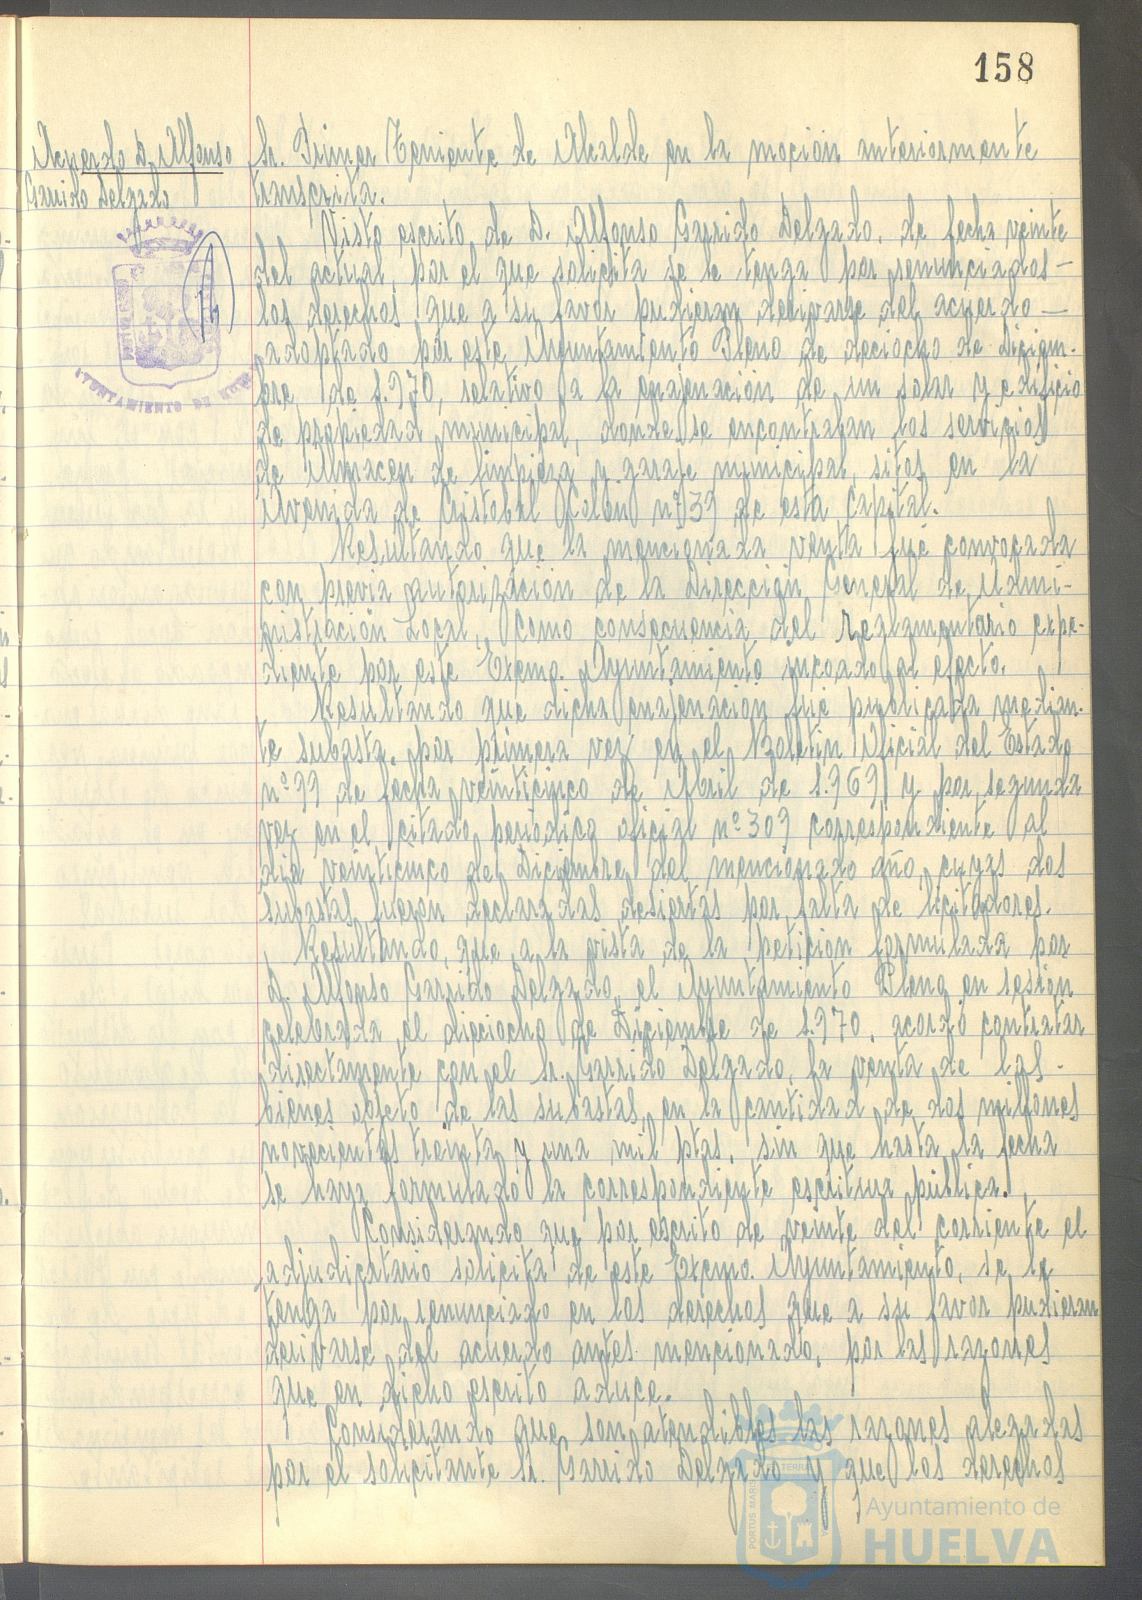 158
Acuerdo D. Alfonso
Garrido Delgado
AYUNTAMIENTO DE HUELVA
Sr. Primer Teniente de Alcalde en la moción anteriormente
transcrita.
Visto escrito de D. Alfonso Garrido Delgado, de fecha veinte
del actual, por el que solicita se le tenga por renunciados—
los derechos que a su favor pudieran derivarse del acuerdo—
adoptado por este Ayuntamiento Pleno de deciocho de Diciem-
bre de 1.970, relativo a la enajenación de un solar y edificio
de propiedad municipal, donde se encontraban los servicios
de Almacen de limpieza y garaje municipal, sitos en la
Avenida de Cristobal Colón nº 39 de esta Capital.
Resultando que la mencionada venta fué convocada
con previa autorización de la Dirección General de Admi-
nistración Local, como consecuencia del Reglamentario expe-
diente por este Excmo. Ayuntamiento incoado al efecto.
Resultando que dicha enajenación fué publicada median-
te subasta, por primera vez en el Boletín Oficial del Estado
nº 99 de fecha veinticinco de Abril de 1.969 y por segunda
vez en el citado periodico oficial nº 309 correspondiente al
dia veinticinco de Diciembre del mencionado año, cuyas dos
subastas fueron declaradas desiertas por falta de licitadores.
Resultando, que a la vista de la petición formulada por
D. Alfonso Garrido Delgado, el Ayuntamiento Pleno en sesión
celebrada el dieciocho de Diciembre de 1.970, acordó contratar
directamente con el Sr. Garrido Delgado, la venta de los-
bienes objeto de las subastas, en la cantidad de dos millones
novecientas treinta y una mil ptas, sin que hasta la fecha
se haya formulado la correspondiente escritura pública.
Considerando que por escrito de veinte del corriente el
adjudicatario solicita de este Excmo. Ayuntamiento, se le
tenga por renunciado en los derechos que a su favor pudieran
derivarse del acuerdo antes mencionado, por las razones
que en dicho escrito aduce.
Considerando que son atendibles las razones alegadas
por el solicitante Sr. Garrido Delgado y que los derechos
PORTUS MARIS
Ayuntamiento de
HUELVA